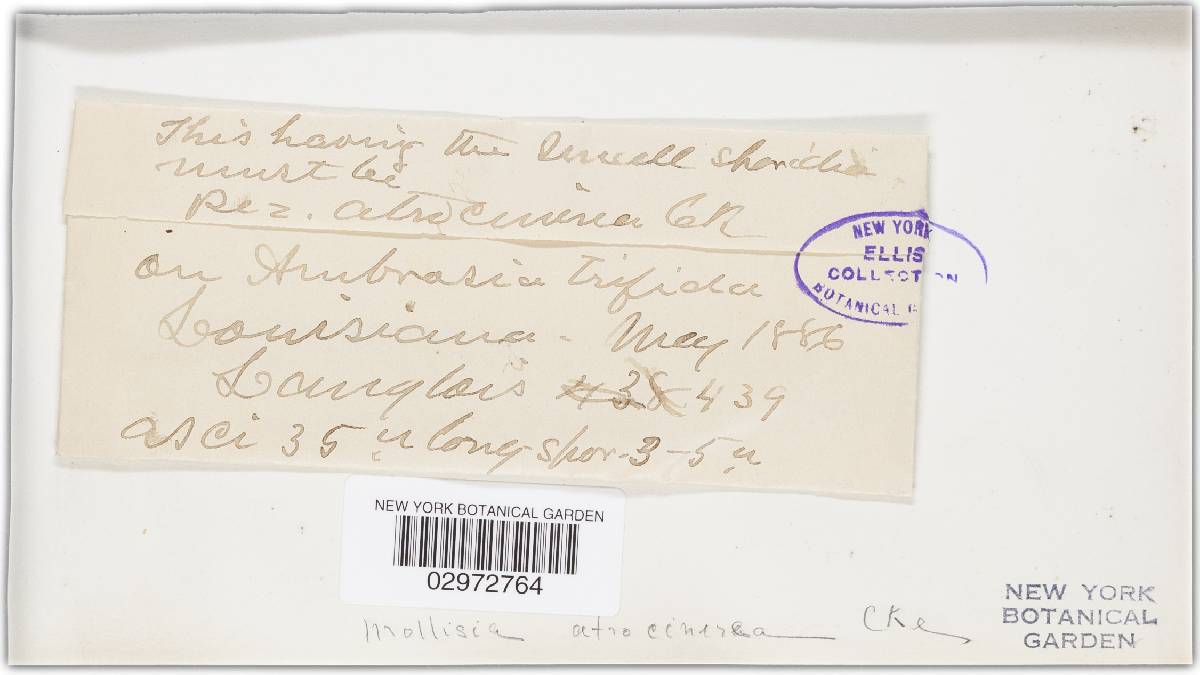 This having the small sporidia
must be
Pez. atrocinerea Ck
on Ambrosia trifida
Louisiana - May 1886
Langlois 439
asci 35 u long spor. 3-5 u
NEW YORK
ELLIS
COLLECTION
BOTANICAL G
NEW YORK BOTANICAL GARDEN
02972764
Mollisia atrocinerea Cke
NEW YORK
BOTANICAL
GARDEN